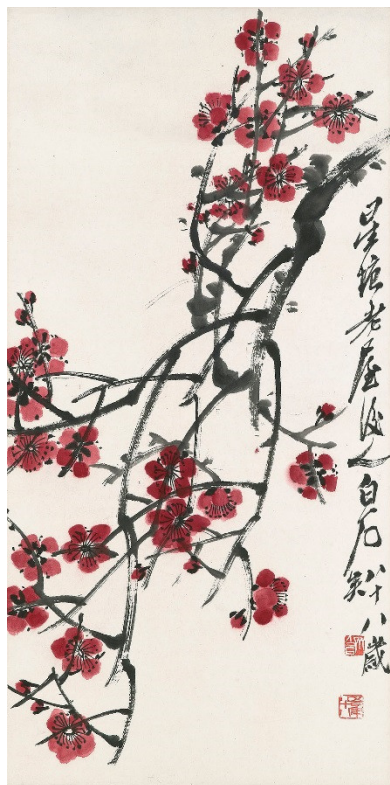 星塘老屋後人白石十八歲